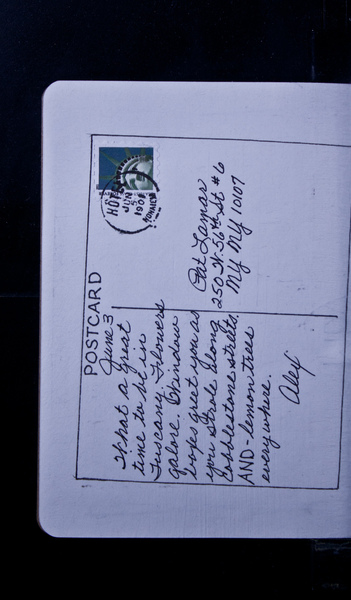 POSTCARD
June 3
What a great
time to be in
Tuscany. Flowers
galore. Window
boxes greet you as
you strole along
cobblestone streets
AND - lemon trees
everywhere.
Alex
HOTEL
JUN
5
1901
Pat Lamar
250 W. 56th St #6
NY NY 10107